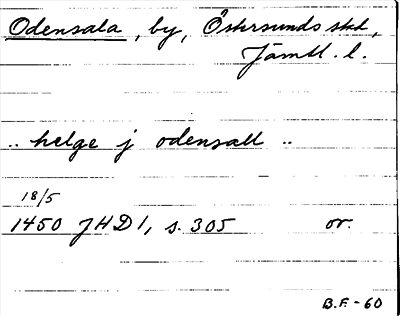 Odensala, by, Östersunds stad,
Jämtl. l.
.. helge j odensall ..
18/5
1450 JHD1, s. 305 or.
B.F.-60